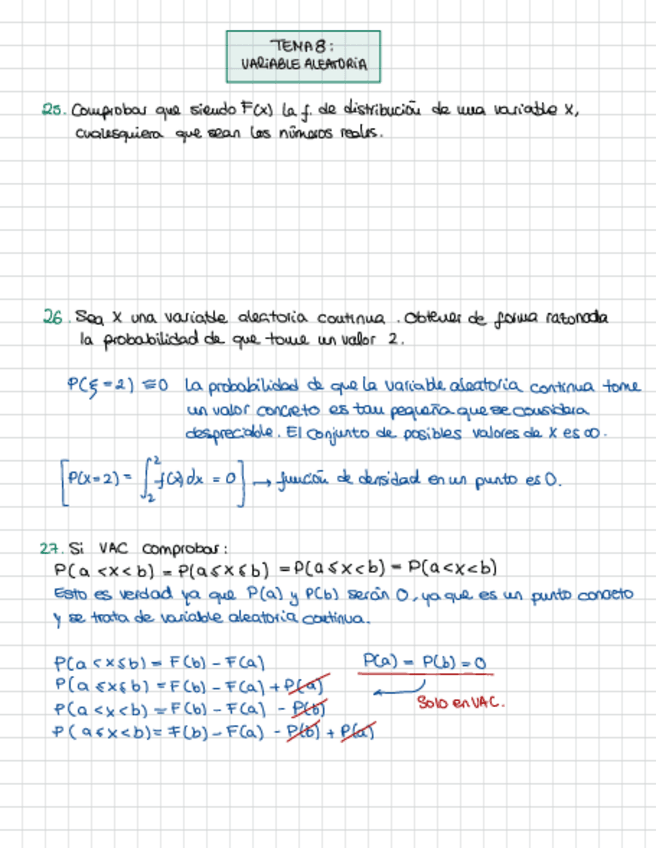 TEMA 8:
VARIABLE ALEATORIA
25. Comprobar que siendo F(x) la f. de distribución de una variable X,
cualesquiera que sean los números reales.
26. Sea X una variable aleatoria continua. Obtener de forma razonada
la probabilidad de que tome un valor 2.
P(ξ=2) ≅0 La probabilidad de que la variable aleatoria continua tome
un valor concreto es tan pequeña que se considera
despreciable. El conjunto de posibles valores de X es ∞.
[P(X=2) = ∫₂² f(x) dx = 0] → función de densidad en un punto es 0.
27. Si VAC comprobar:
P(a <x<b) = P(a≤x≤b) = P(a≤x<b) = P(a<x<b)
Esto es verdad ya que P(a) y P(b) serán 0, ya que es un punto concreto
y se trata de variable aleatoria continua.
P(a<x≤b) = F(b) - F(a) P(a) = P(b) = 0
P(a≤x≤b) = F(b) - F(a) + P(a)
P(a<x<b) = F(b) - F(a) - P(b) Solo en VAC.
P(a≤x<b) = F(b) - F(a) - P(b) + P(a)